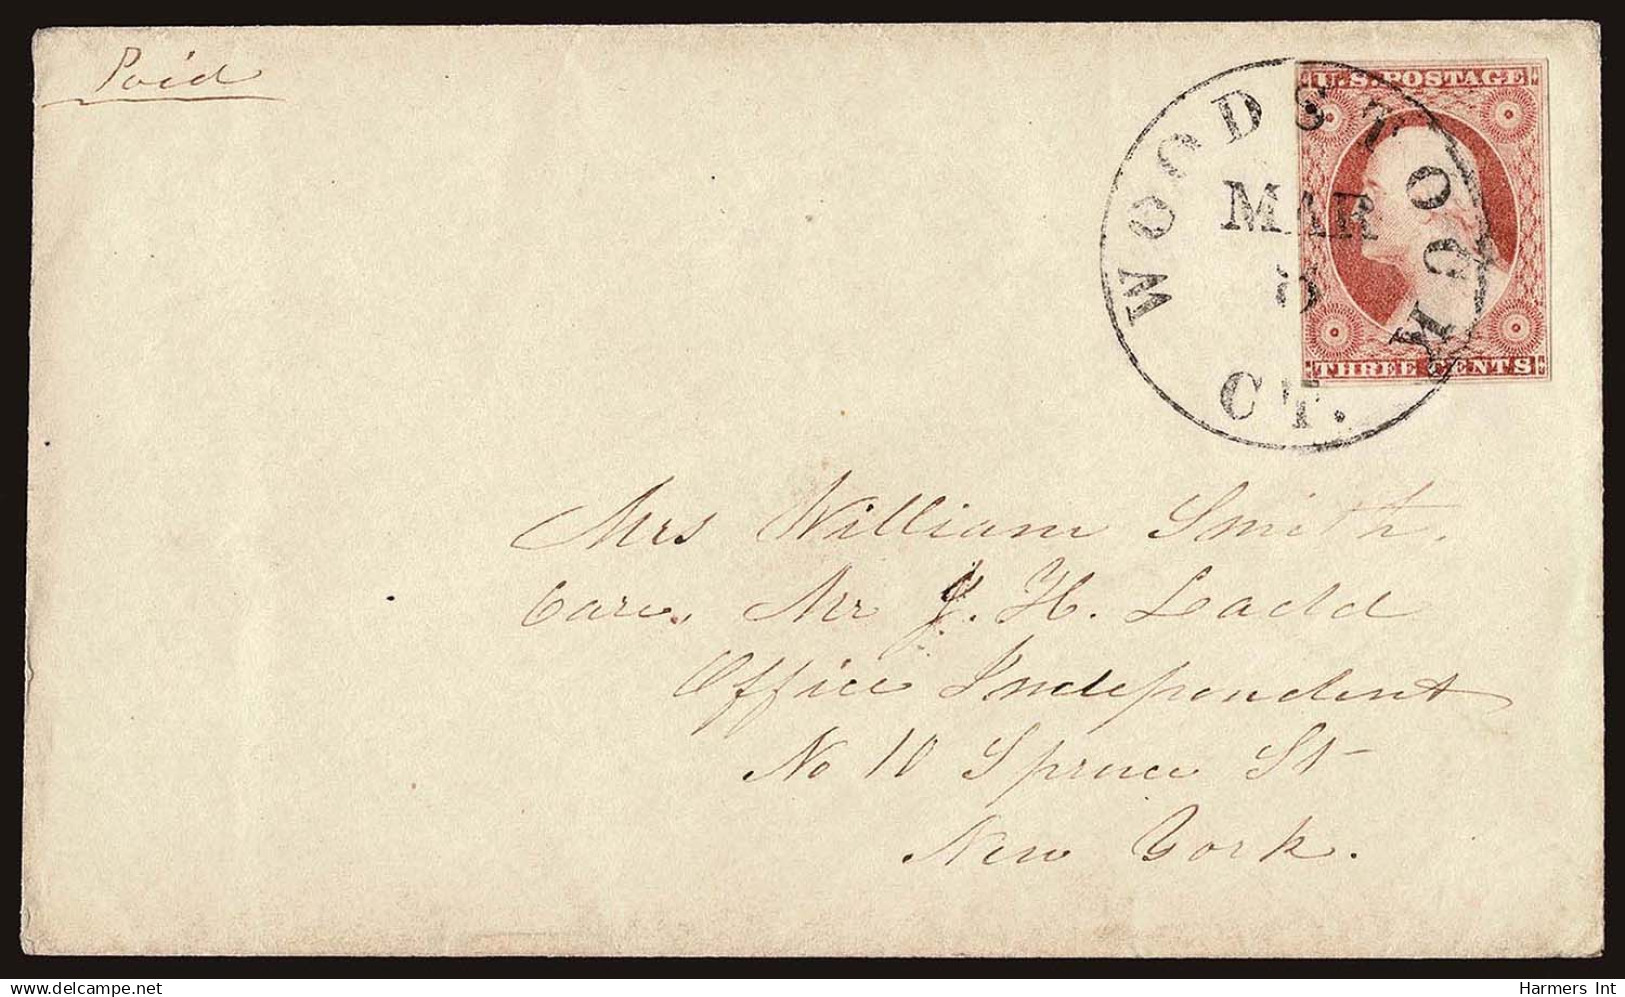 Paid
U.S. POSTAGE
THREE CENTS
WOODSTOCK
MAR
CT.
Mrs William Smith.
Care, Mr J. H. Ladd
Office Independent
No 10 Spruce St
New York.
delcampe.net
Harmers Int